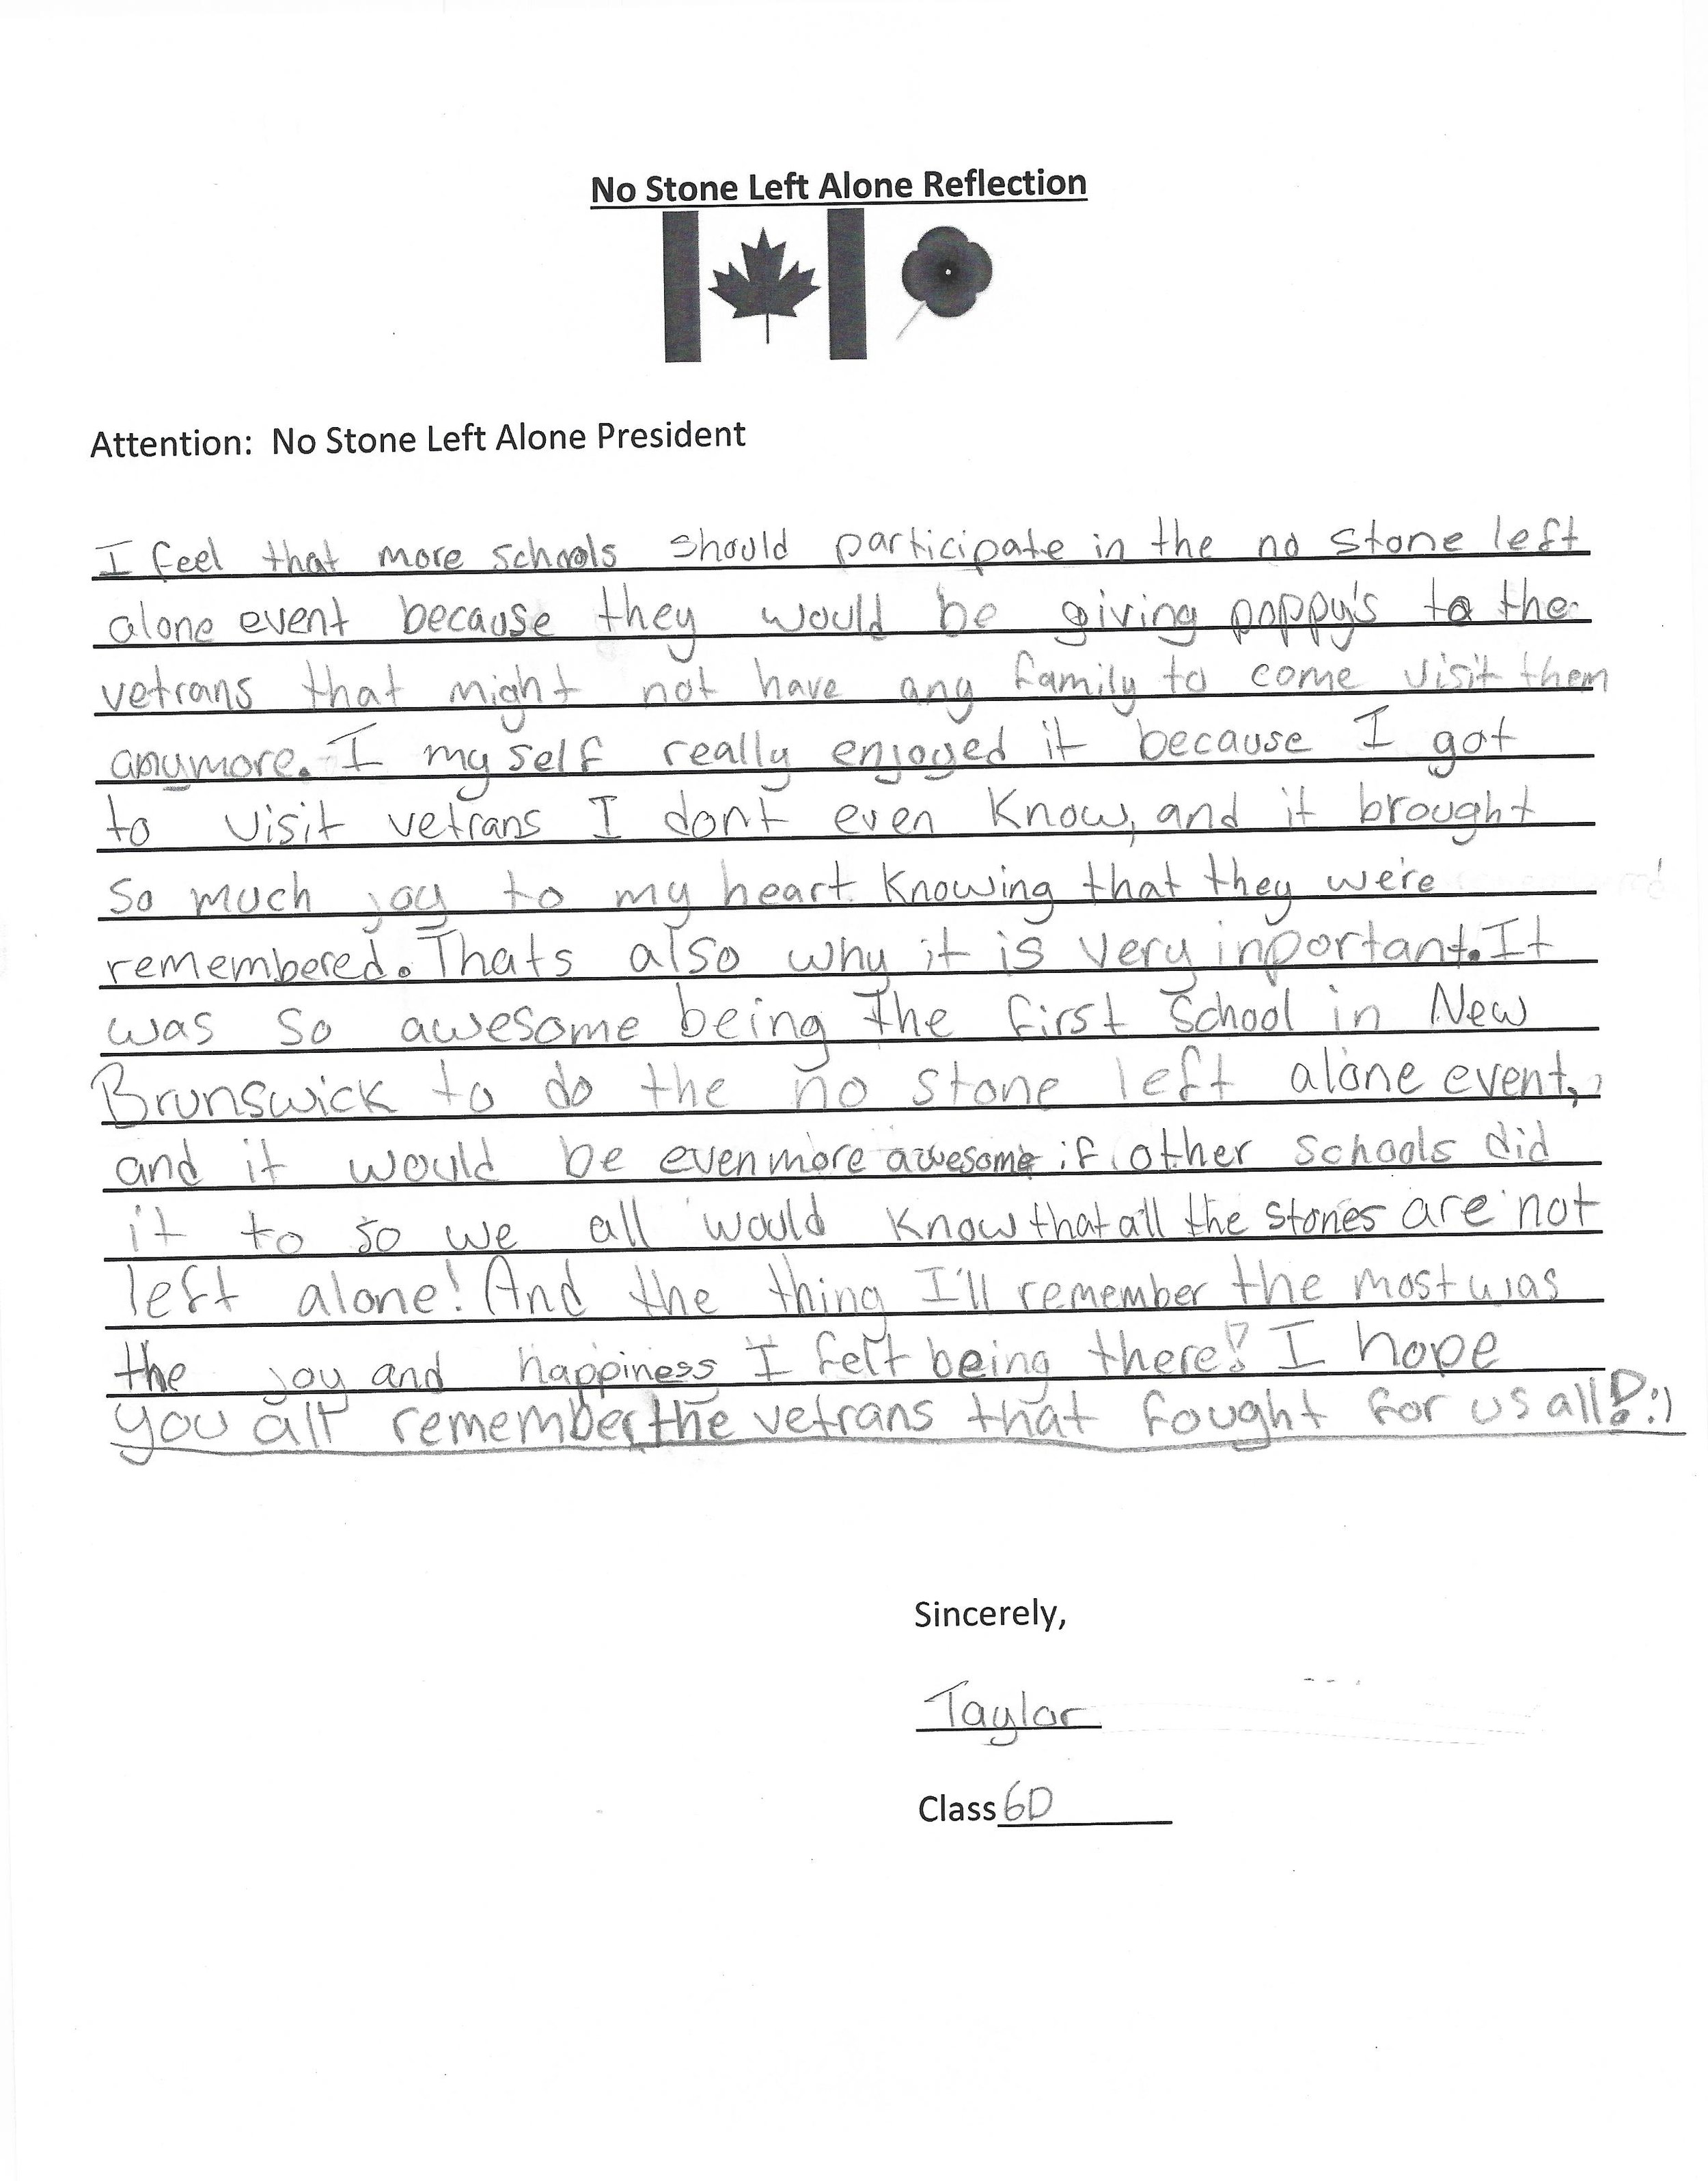 No Stone Left Alone Reflection
Attention: No Stone Left Alone President
I feel that more schools should participate in the no stone left
alone event because they would be giving poppy's to the
vetrans that might not have any family to come visit them
anymore. I my self really enjoyed it because I got
to visit vetrans I dont even know, and it brought
so much joy to my heart knowing that they were
remembered. Thats also why it is very inportant. It
was so awesome being the first school in New
Brunswick to do the no stone left alone event,
and it would be even more awesome if other schools did
it to so we all would know that all the stones are not
left alone! And the thing I'll remember the most was
the joy and happiness I felt being there! I hope
you all remember the vetrans that fought for us all! :)
Sincerely,
Taylor
Class 6D